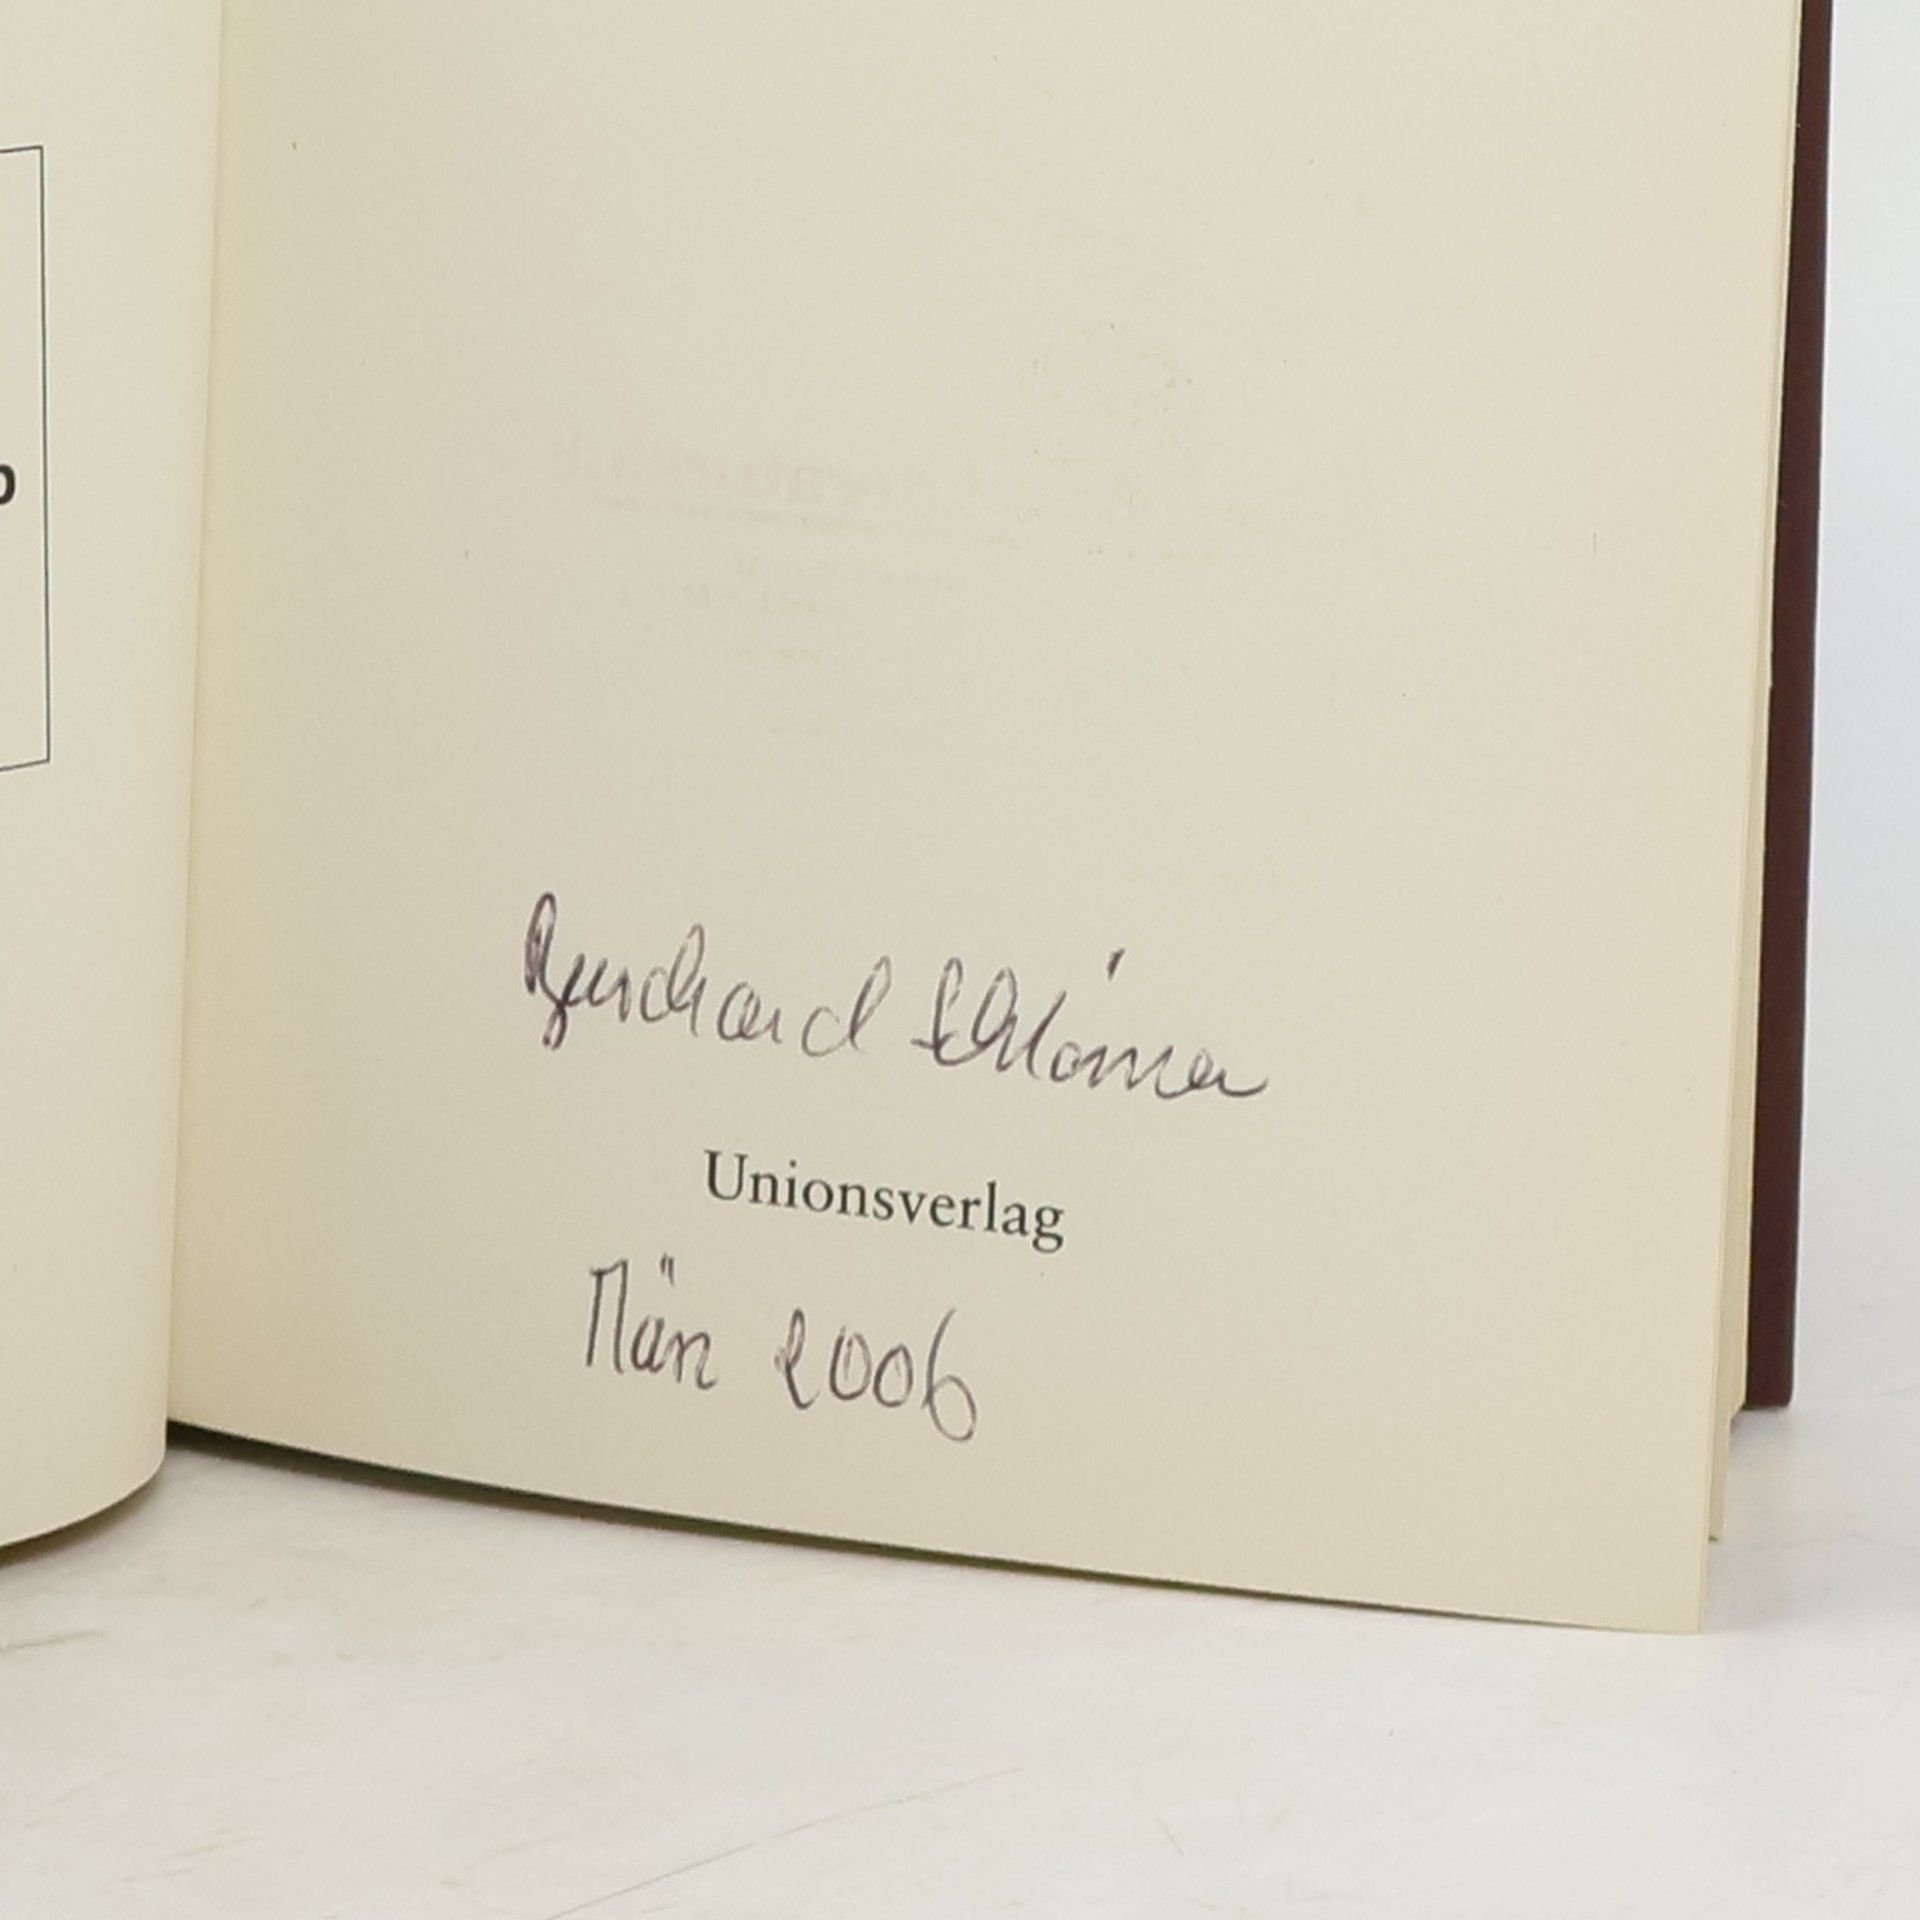 Burchard Schlömer
Unionsverlag
März 2006